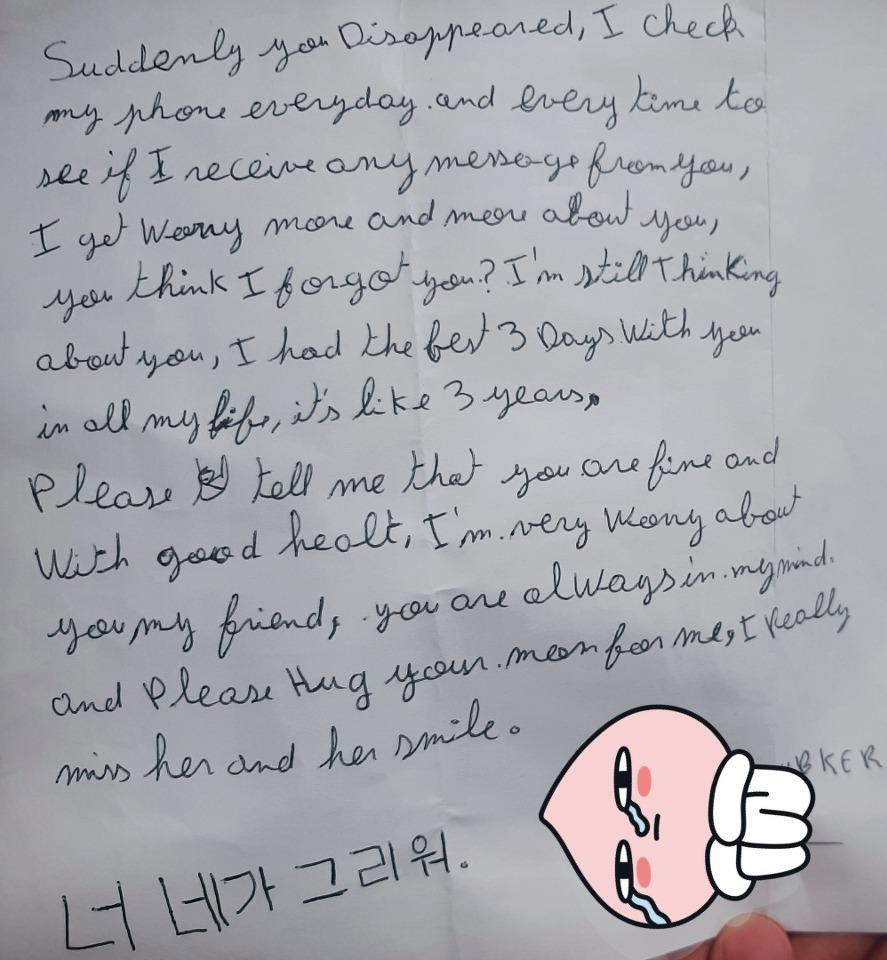 Suddenly you Disappeared, I check
my phone everyday.and every time to
see if I receive any message from you,
I get Worry more and more about you,
you think I forgot you? I'm still Thinking
about you, I had the best 3 Days With you
in all my life, it's like 3 years,
Please tell me that you are fine and
With good healt, I'm.very Worry about
you my friend, .you are alWays in.my mind.
and Please Hug your.mom for me, I Really
miss her and her smile.
BKER
너 네가 그리워.